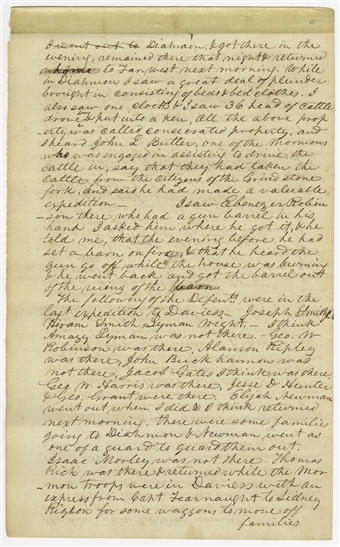 I went out to Diahmon, & got there in the
evening, remained there that night & returned
to Far-west next morning. While
in Diahmon I saw a great deal of plunder
brought in consisting of beds & bed clothes. I
also saw one clock & I saw 36 head of cattle
drove & put into a pen, All the above prop
-erty was called consecrated property, and
I heard John L Butler, one of the Mormons
who was engaged in assisting to drive the
cattle in, say that they had taken the
cattle from the citizens of the Grindstone
fork, and said he had made a valuable
expedition — I saw Ebenezer Robin
-son there who had a gun barrel in his
hand I asked him where he got it, & he
told me, that the evening before he had
set a barn on fire & that he heard the
gun go off while the house was burning
he went back and got the barrel out
of the ruins of the barn
The following of the Defts. were in the
last expedition to Daviess. Joseph Smith
Hiram Smith Lyman Wight, — I think
Amasy Lyman was not there, — Geo. W
Robinson was there, Alanson Ripley
was there, John Buckhannon was
not there, Jacob Gates I think was there,
Geo. W. Harris was there, Jesse D Hunter
& Geo. Grant were there. Elijah Newman
went out when I did & I think returned
next morning. there were some families
going to Diahmon & Newman went as
one of a guard to guard them out.
Isaac Morley was not there. Thomas
Rich was there & returned while the Mor
mon troops were in Daviess with an
express from Capt Fearnaught to Sidney
Rigdon for some waggons to move off
families